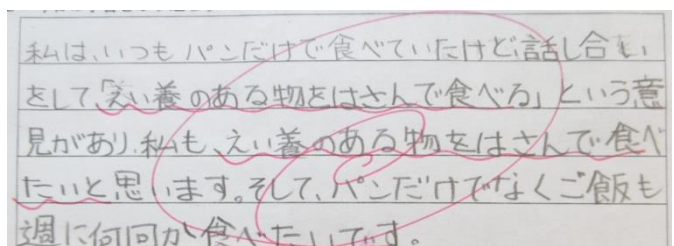 私は、いつもパンだけで食べていたけど、話し合い
をして、「えい養のある物をはさんで食べる」という意
見があり、私も、えい養のある物をはさんで食べ
たいと思います。そして、パンだけでなくご飯も
週に何回か食べたいです。